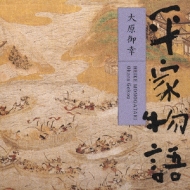 平家物語
大原御幸
HEIKE MONOGATARI
OHARA GOKOU